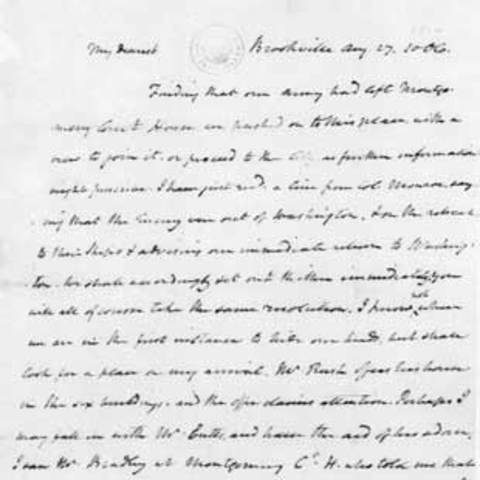 My dearest Brookville Aug 27. 10 oC.
Finding that our army had left Montgo-
mery Court House we pushed on to this place, with a
view to join it, or proceed to the City as further information
might prescribe. I have just recd. a line from Col. Monroe, say
ing that the Enemy were out of Washington, & on the retreat
to their Ships & advising our immediate return to Washing-
ton. We shall accordingly set out thither immediately. You
will all of course take the same resolution. I know not where
we are in the first instance to hide our heads; but shall
look for a place on my arrival. Mr. Rush offers his house
in the six buildings, and the offer claims attention. Perhaps I
may fall in with Mr. Cutts, and have the aid of his advice.
I saw Mr. Bradley at Montgomery Ct. H. who told me that